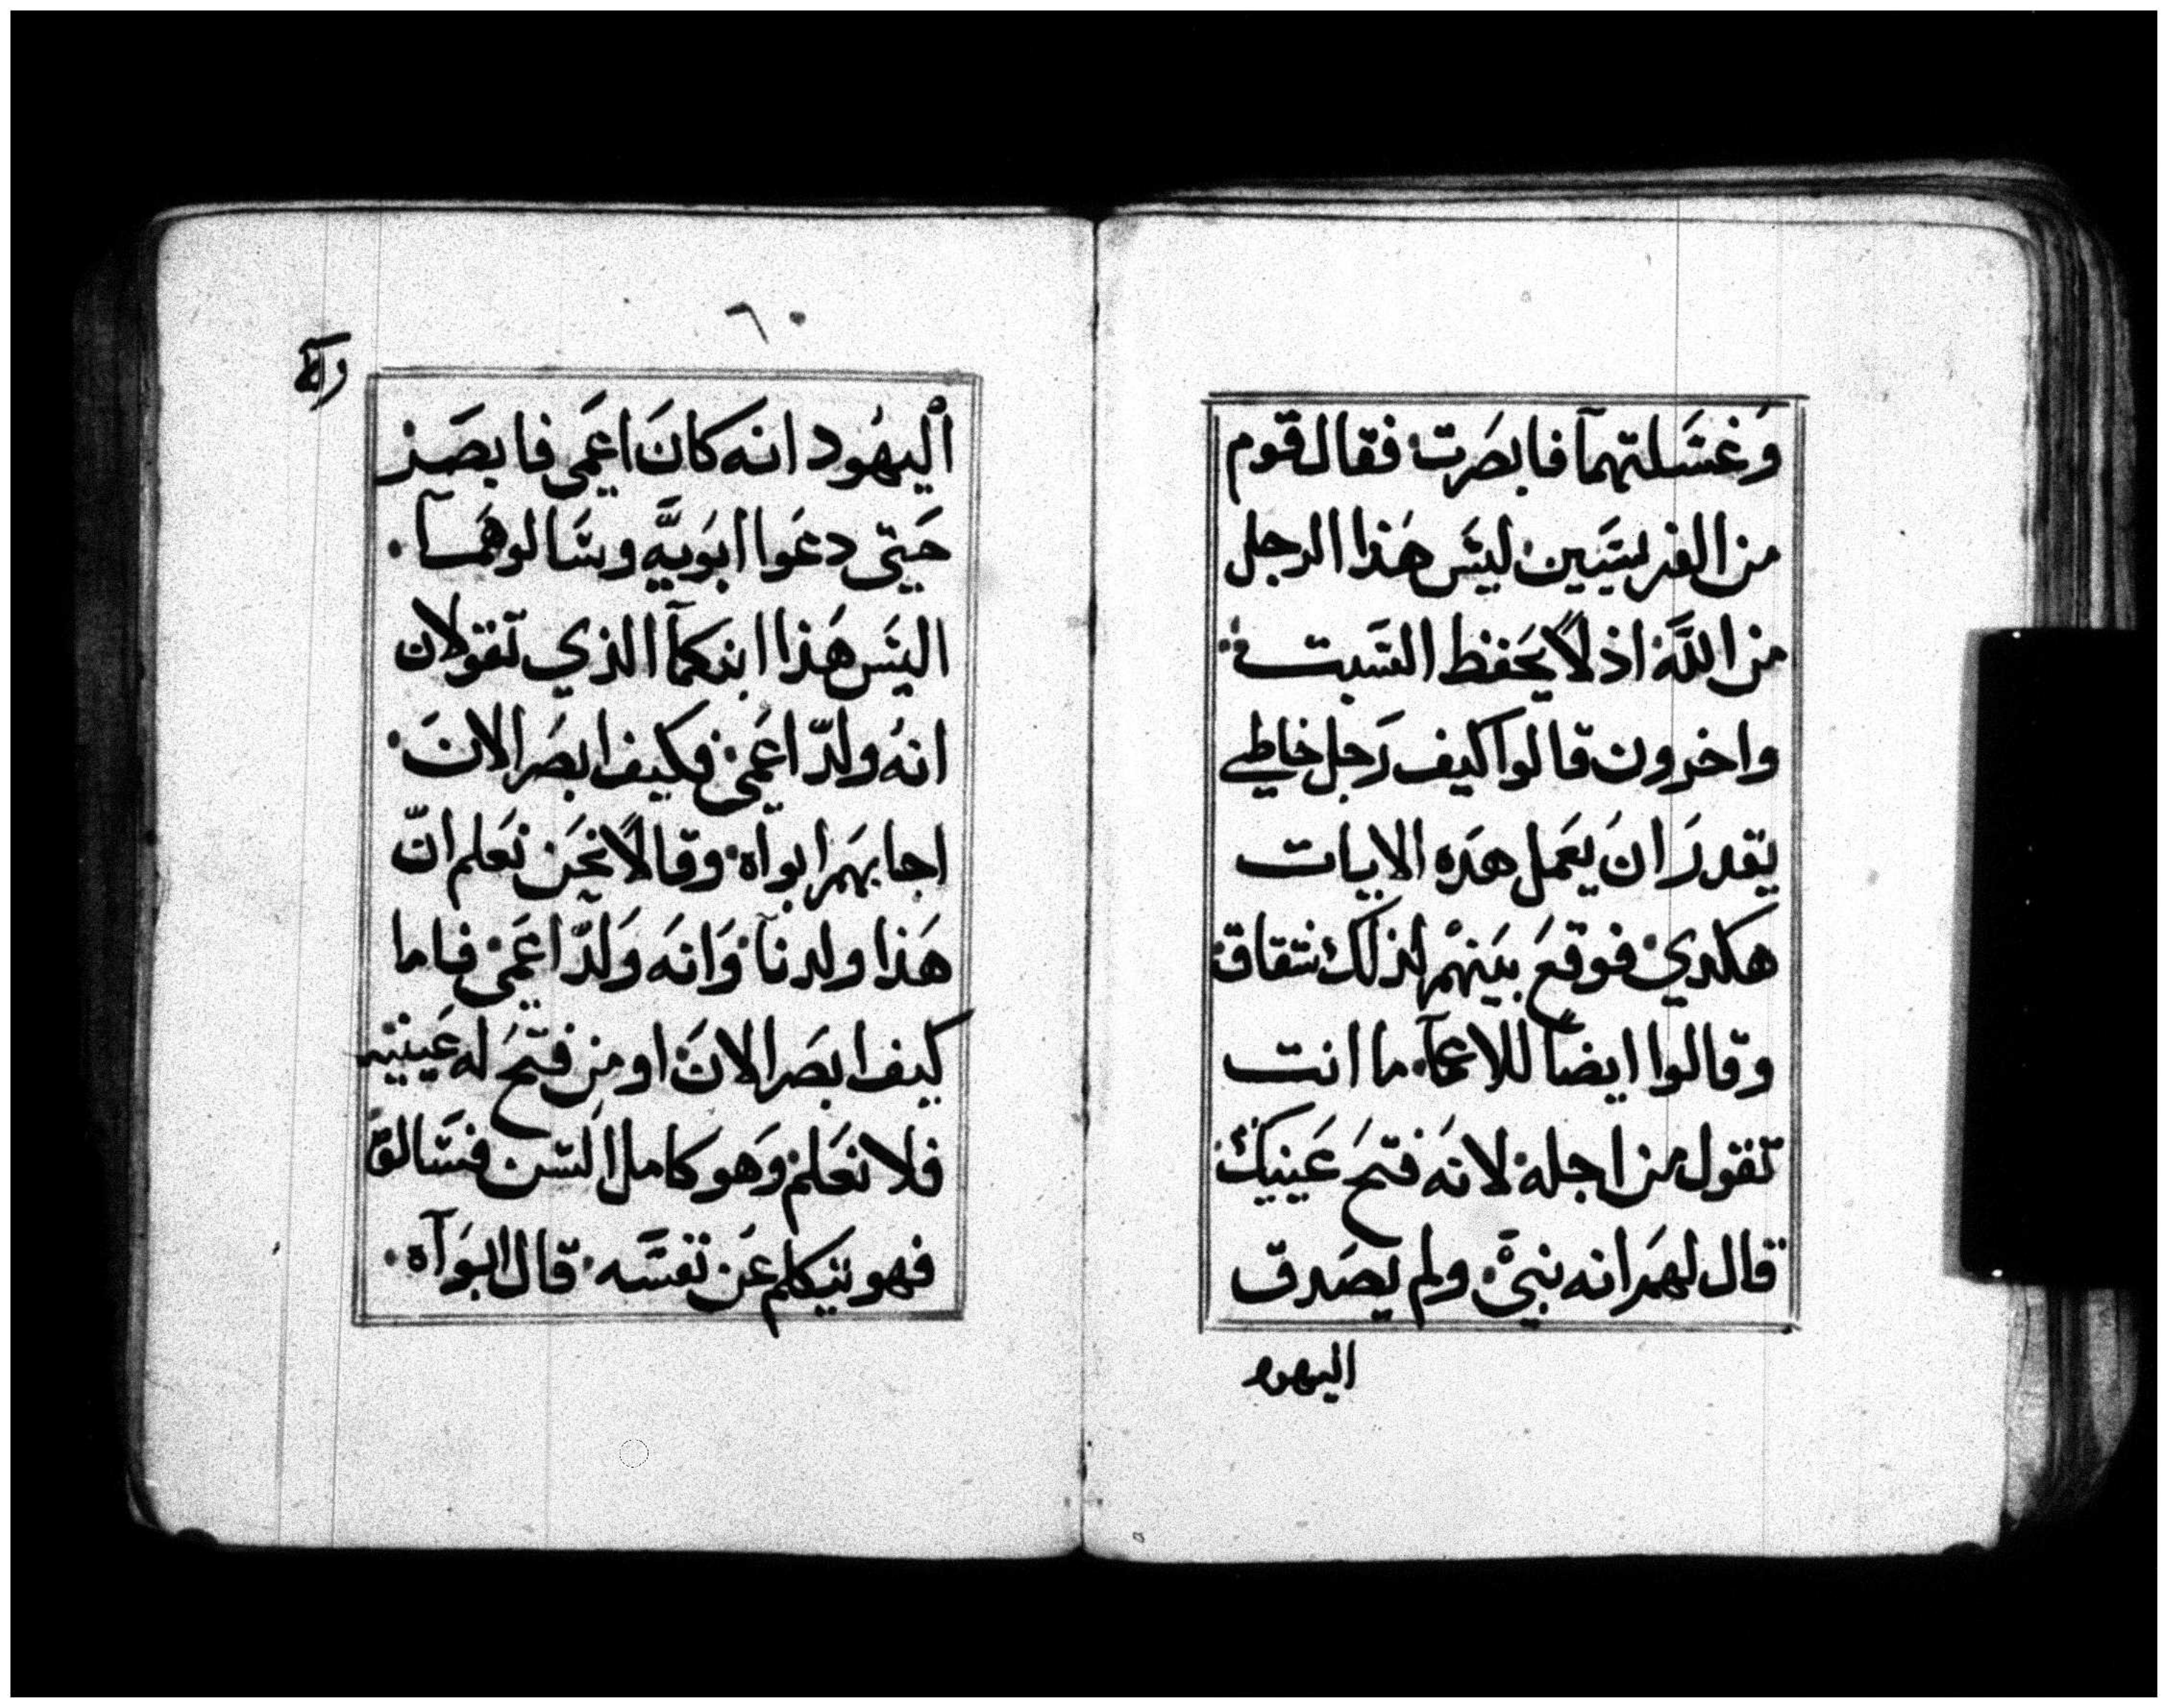 وَغسَلتهمآ فابصَرت فقال قوم
من الفريسَيين ليسَ هَذا الرجل
من اللَّه اذ لاً يحَفظ السَبت
واخرون قالوا كيف رَجل خاطي
يقدرَ انَ يعَمل هَده الايات
هكدي فوقعَ بيَنهمْ لذلك شقاق
وقالوا ايضاً للاعمآ ما انت
تقول من اجله لانهَ فتحَ عَينيك
قال لهمَ انه نبيَّ ولم يصَدق
اليهود
٦٠
اْليهُود انهَ كانَ اعَمي فابصَر
حَتي دعَوا ابوَيهَّ وسَّالوهمَآ
اليسَ هَذا ابنكمآ الذي تقولان
انهُ ولدّ اعَمي فكيف ابصَر الانَ
اجابهمَ ابوآه وقالاً نحَن نعَلم انّ
هَذا ولدنآ وَانهَ وَلدّ اعَمي فاما
كيف ابصَر الانَ او مِن فتحَ له عَينيه
فلا نعَلم وَهو كامل السَن فسَّالوَّ
فهو يتيكلم عَن نفسَّه قال ابوَآه